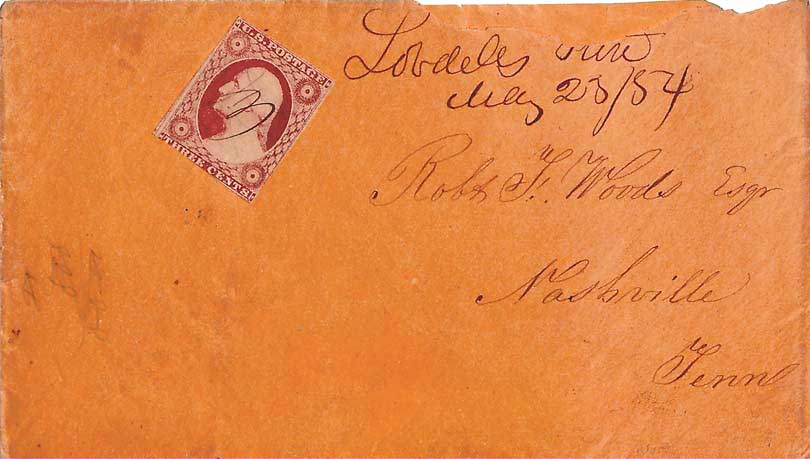 U.S. POSTAGE
THREE CENTS
Lobdells
May 23/54
Robt F. Woods Esqr
Nashville
Tenn